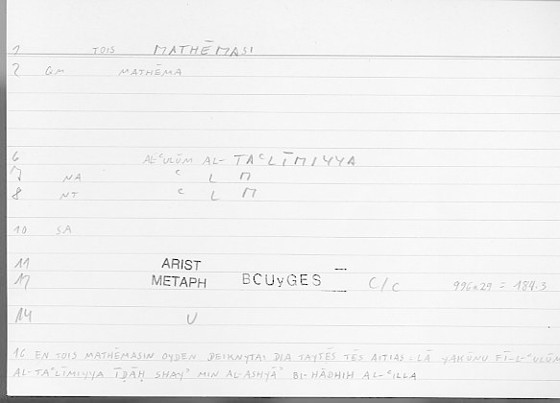 1 TOIS MATHĒMASI
2 GM MATHĒMA
6 AL-ʿULŪM AL-TAʿLĪMIYYA
7 NA ʿ L M
8 NT ʿ L M
10 SA
11 ARIST
12 METAPH BOUyGES C/C 996a29 = 184.3
14 U
16 EN TOIS MATHĒMASIN OYDEN DEIKNYTAI DIA TAYTĒS TĒS AITIAS : LĀ YAKŪNU FĪ-L-ʿULŪM
AL-TAʿLĪMIYYA ĪḌĀḤ SHAYʾ MIN AL-ASHYĀʾ BI-HĀDHIH AL-ʿILLA